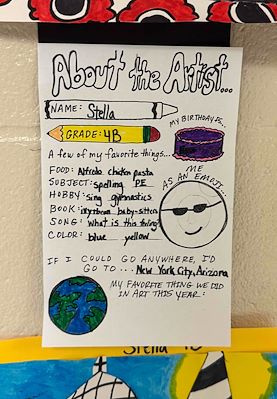 About the Artist...
NAME: Stella
MY BIRTHDAY IS...
GRADE: 4B
A few of my favorite things...
ME AS AN EMOJI...
FOOD: Alfredo chicken pasta
SUBJECT: spelling PE
HOBBY: sing gymnastics
BOOK: baby-sitters
SONG: what is this thing?
COLOR: blue yellow
IF I COULD GO ANYWHERE, I'D
GO TO... New York City, Arizona
MY FAVORITE THING WE DID
IN ART THIS YEAR:
Stella